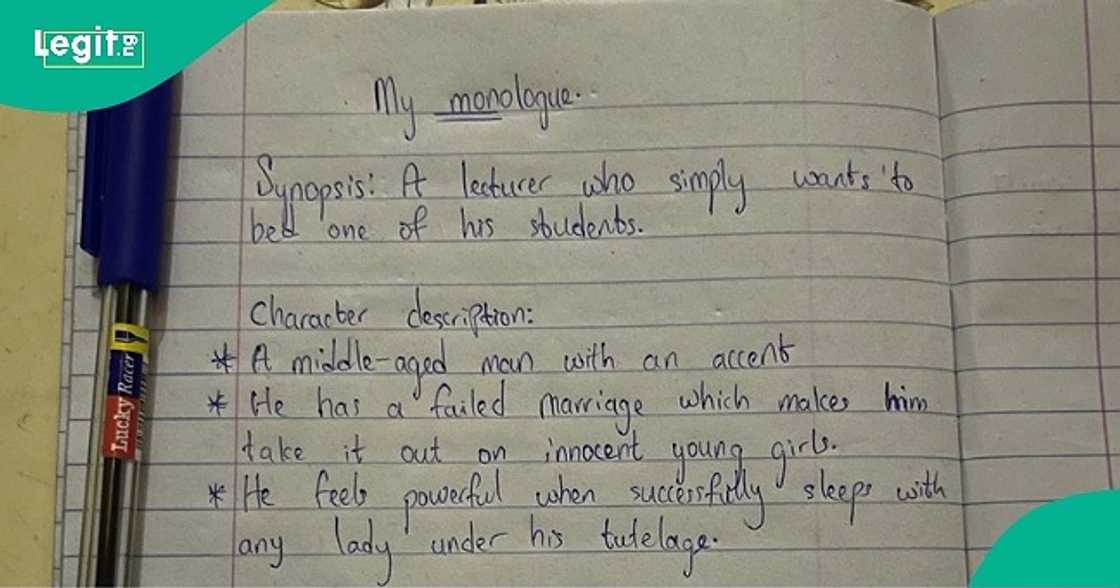 Legit.ng
My monologue.
Synopsis: A lecturer who simply wants to
bed one of his students.
Character description:
* A middle-aged man with an accent
* He has a failed marriage which makes him
take it out on innocent young girls.
* He feels powerful when successfully sleeps with
any lady under his tutelage.
Lucky Racer